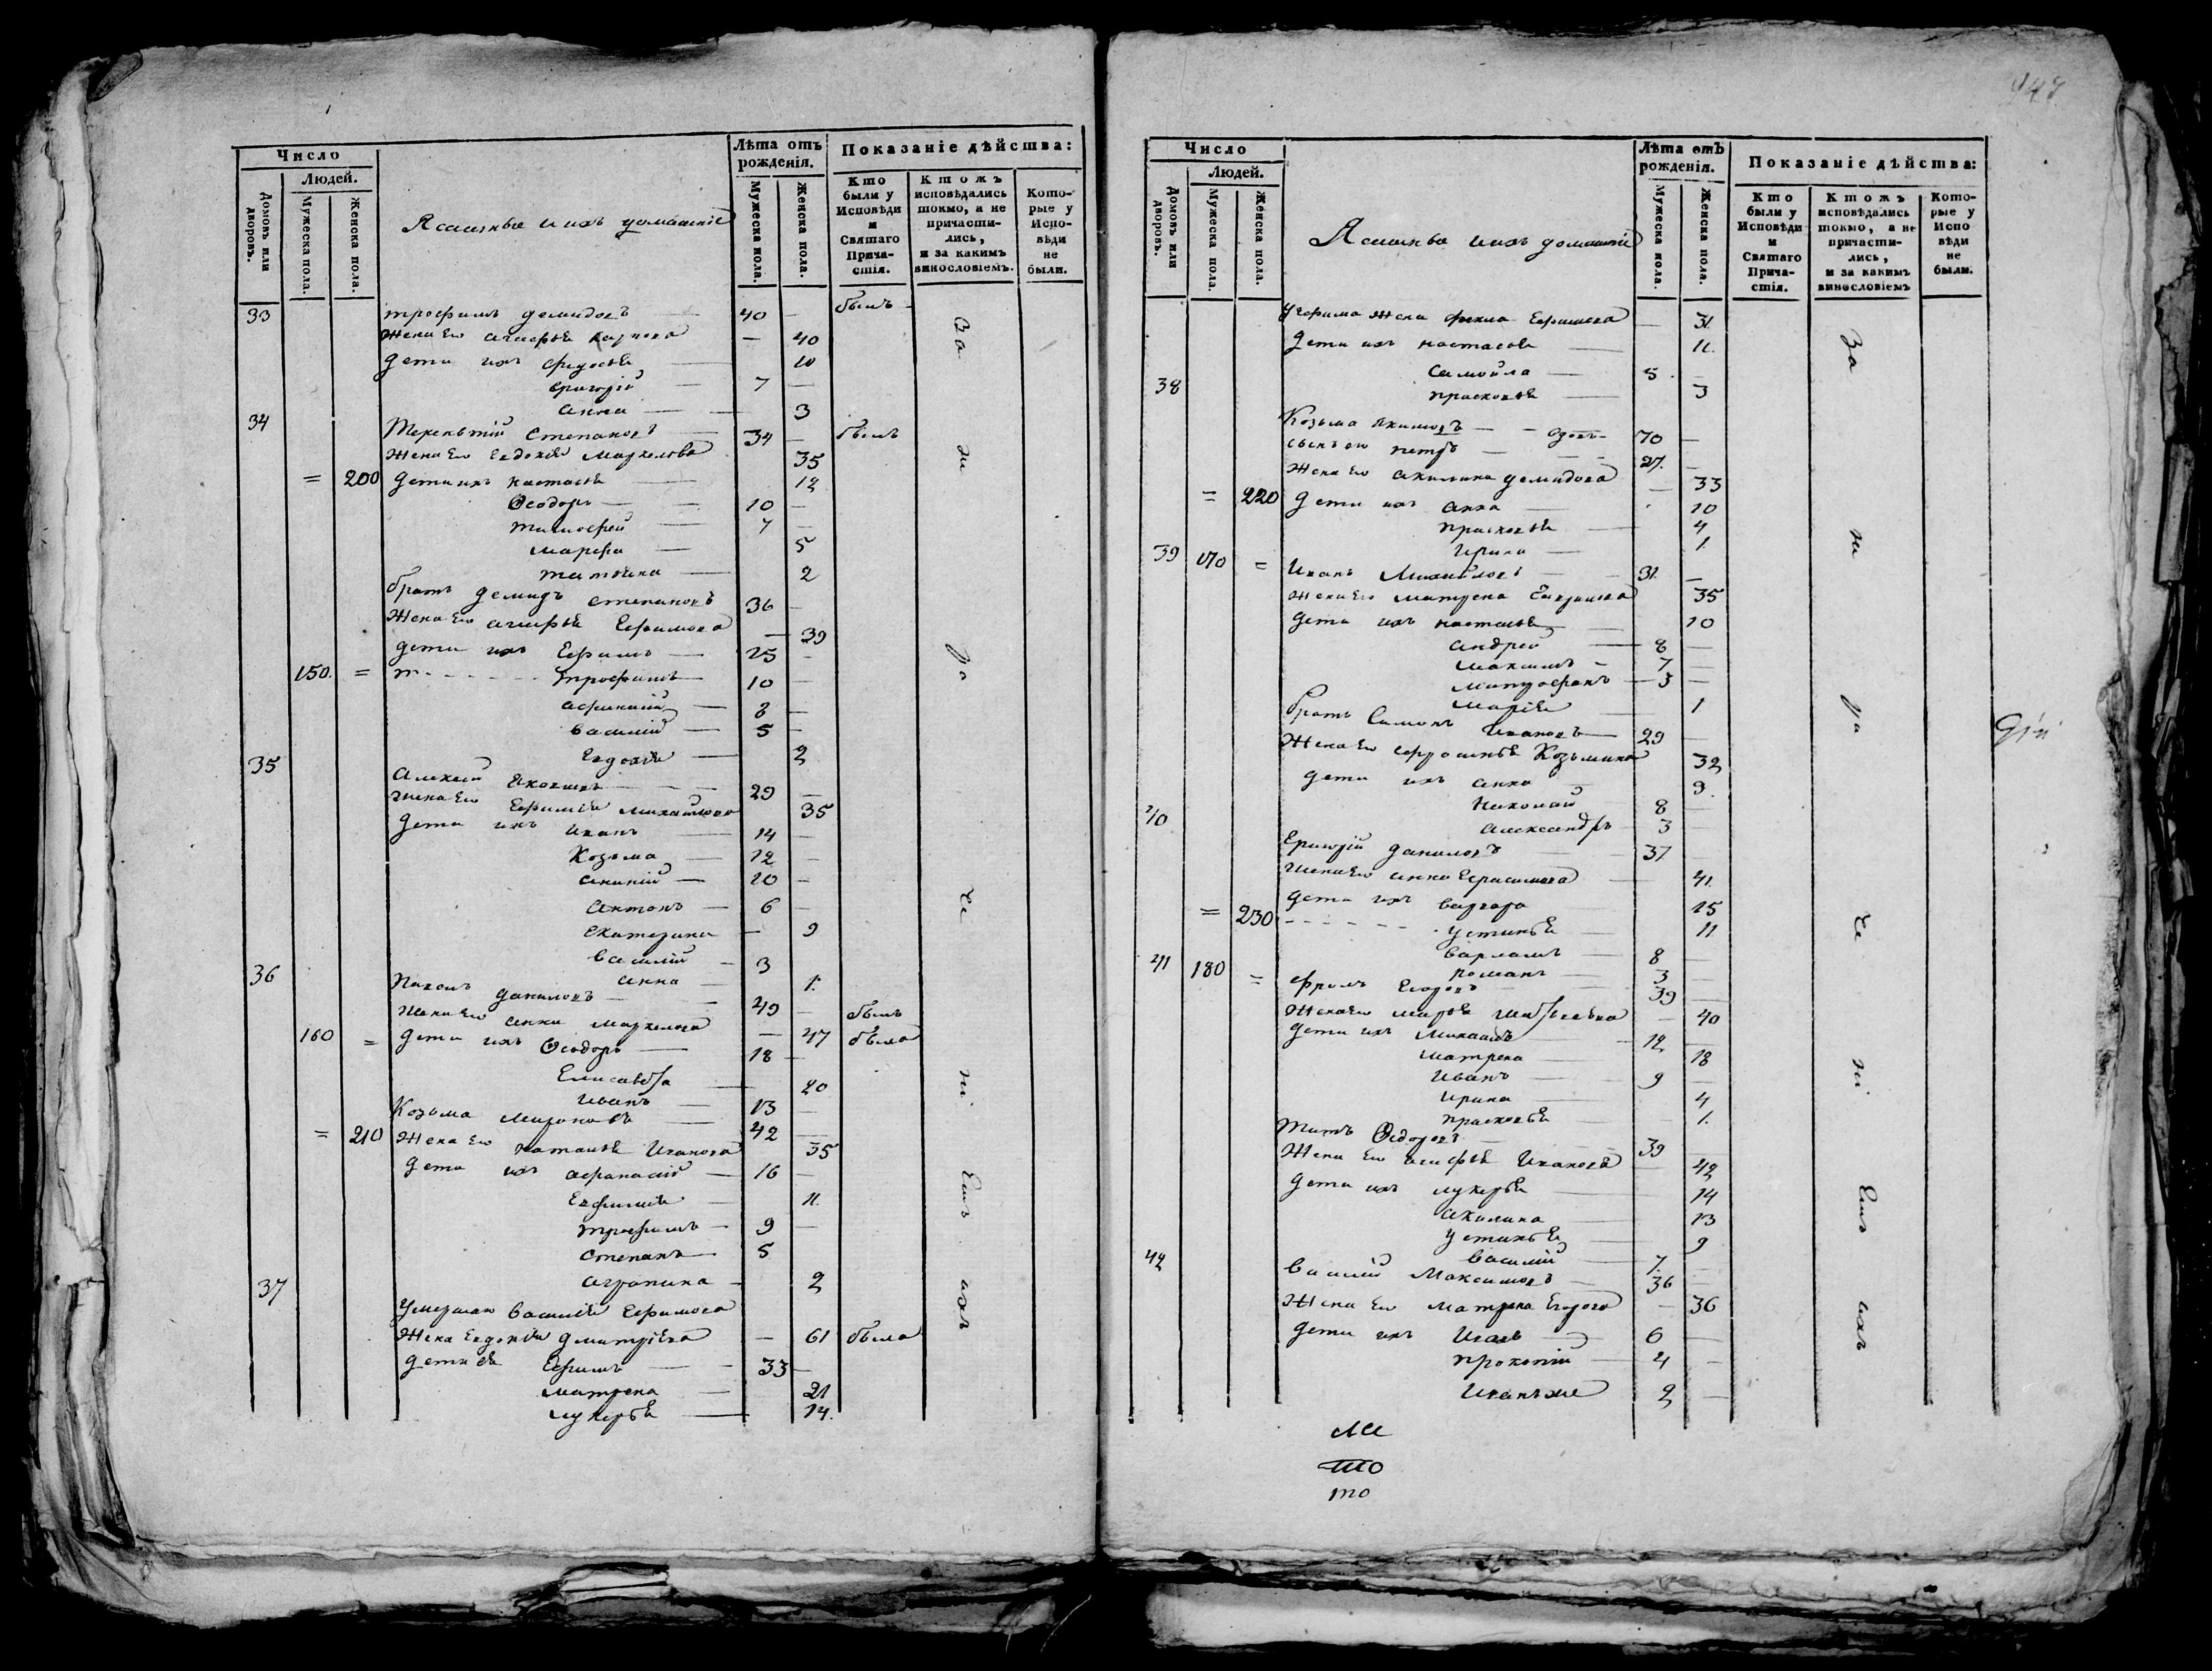 Число
Людей.
Домовъ или дворовъ.
Мужеска пола.
Женска пола.
Лѣта отъ рожденія.
Мужеска пола.
Женска пола.
Показаніе дѣйства:
Кто были у Исповѣди и Святаго Прича-стія.
Ктожъ исповѣдались токмо, а не причасти-лись, и за какимъ винословіемъ.
Кото-рые у Испо-вѣди не были.
и ихъ домашніе
33 трофимъ демидовъ — 40 — былъ
Жена Его агафья карпова — 40
Дети ихъ федосья — 10
Григорій — 7 —
анна — 3
34 Терентій Степановъ 34 — былъ
Жена Его Евдокия Маркелова 35
= 200 Дети ихъ настасья — 12
Ѳеодоръ — 10 —
тимофей — 7 —
марфа — 5
татьяна — 2
братъ демидъ степановъ 36 —
Жена Его агафья Ефимова — 39
дети ихъ Ефимъ — 25 —
150. = трофимъ — 10 —
8 —
василий — 5 —
Евдокия — 2
35 Алексей 29 —
Жена Его Ефимия михайлова 35
Дети ихъ Иванъ — 14 —
Козьма — 12 —
ананий — 10 —
антонъ — 6 —
Екатерина — 9
василий — 3
анна — 1.
36 Пахомъ даниловъ — 49 — былъ
Жена Его анна маркелова — 47 была
160 = Дети ихъ Ѳеодоръ — 18 —
Елисавета — 20
Иванъ — 13 —
Козьма мироновъ 42 —
= 210 Жена Его наталья Иванова 35
Дети ихъ афанасий — 16 —
Евфимия — 11.
трофимъ — 9 —
степанъ — 5
агрипина — 2
37 Умершаго василия Ефимова
Жена Евдокия дмитриева — 61 была
Дети ея Ефимъ — 33 —
матрена — 21
лукерья — 14.
За
ні
Емъ
ихъ
948
Число
Людей.
Домовъ или дворовъ.
Мужеска пола.
Женска пола.
Лѣта отъ рожденія.
Мужеска пола.
Женска пола.
Показаніе дѣйства:
Кто были у Исповѣди и Святаго Прича-стія.
Ктожъ исповѣдались токмо, а не причасти-лись, и за какимъ винословіемъ
Кото-рые у Испо вѣди не были.
ихъ домашніе
жена фекла Ефимова — 31.
Дети ихъ настасья — 11.
Самойла — 5 —
38 прасковья — 3
Козьма — вдовъ 70 —
сынъ его петръ — 27. —
Жена Его акилина демидова — 33
= 220 Дети ихъ анна — 10
прасковья — 4
Ирина — 1
39 170 = Иванъ Михайловъ — 31. —
Жена Его матрена 35
Дети ихъ настасья — 10
андрей — 8 —
максимъ — 7 —
митрофанъ — 3 —
мария — 1
братъ Симонъ Ивановъ — 29 —
Жена Его ефросинья Козьмина 32
Дети ихъ анна 9.
Николай 8 —
40 александръ 3 —
Григорій даниловъ 37
Жена Его анна Герасимова — 41.
Дети ихъ варвара 15
= 230 устинья — 11
варламъ — 8 —
романъ — 3 —
41 180 = фролъ Егоровъ 39 —
Жена Его марфа матвеева — 40
Дети ихъ Михаилъ — 12 —
матрена — 18
Иванъ — 9 —
Ирина — 4
прасковья — 1.
Титъ Ѳедоровъ 39 —
Жена Его агафья Иванова — 42
Дети ихъ лукерья — 14
акилина — 13
устинья — 9
василий — 7. —
42 василий Максимовъ — 36 —
Жена Его матрена Егорова — 36
Дети ихъ Иванъ — 6 —
прокопий — 4 —
Иванъ же 2 —
За
ні
Емъ
ихъ